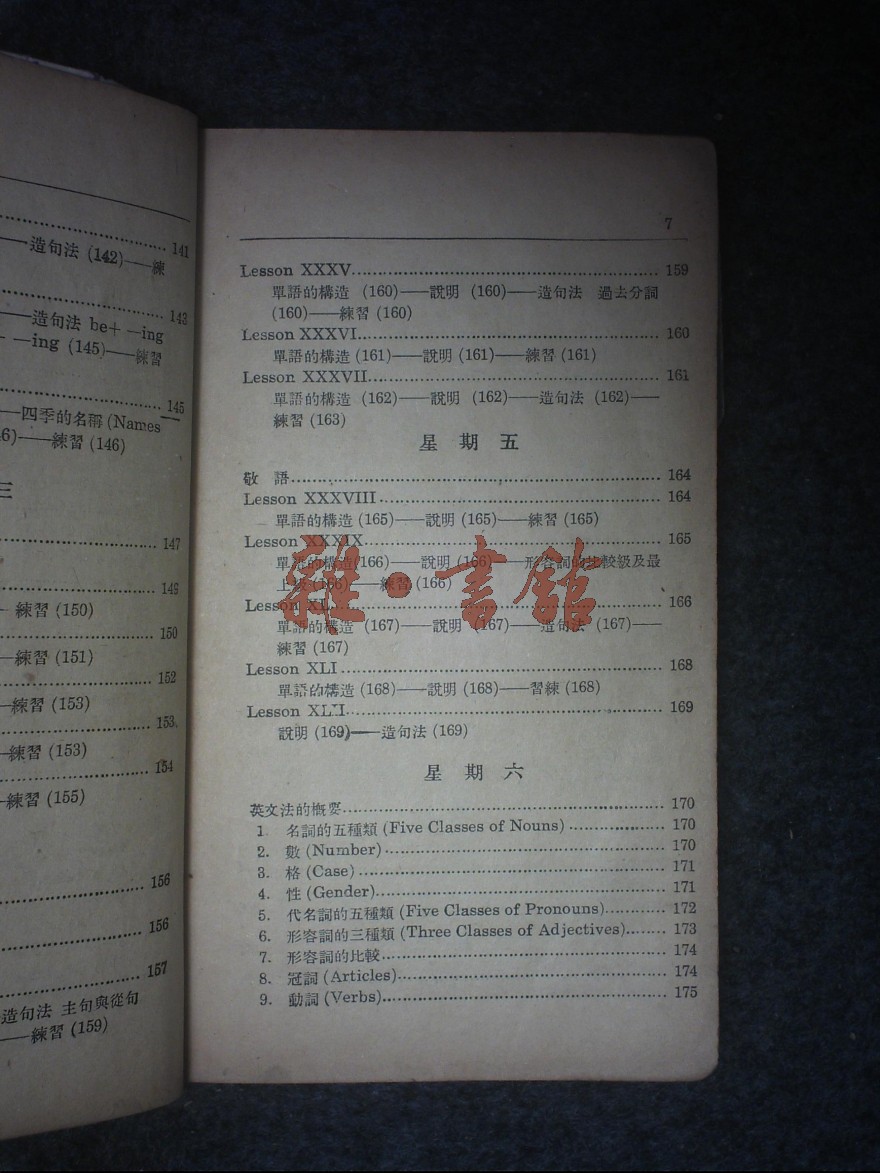 141
造句法 (142)——練
143
造句法 be+ —ing
—ing (145)——練習
145
四季的名稱 (Names
——練習 (146)
三
147
149
練習 (150)
150
練習 (151)
152
練習 (153)
153
練習 (153)
154
練習 (155)
156
156
157
造句法 主句與從句
——練習 (159)
7
Lesson XXXV 159
單語的構造 (160)——說明 (160)——造句法 過去分詞
(160)——練習 (160)
Lesson XXXVI 160
單語的構造 (161)——說明 (161)——練習 (161)
Lesson XXXVII 161
單語的構造 (162)——說明 (162)——造句法 (162)——
練習 (163)
星期五
敬語 164
Lesson XXXVIII 164
單語的構造 (165)——說明 (165)——練習 (165)
Lesson XXXIX 165
單語的構造(166)——說明 (166)——形容詞的比較級及最
上級 (166)——練習 (166)
雜·書館
Lesson XL 166
單語的構造 (167)——說明 (167)——造句法 (167)——
練習 (167)
Lesson XLI 168
單語的構造 (168)——說明 (168)——習練 (168)
Lesson XLII 169
說明 (169)——造句法 (169)
星期六
英文法的概要 170
1 名詞的五種類 (Five Classes of Nouns) 170
2. 數 (Number) 170
3. 格 (Case) 171
4. 性 (Gender) 171
5. 代名詞的五種類 (Five Classes of Pronouns) 172
6. 形容詞的三種類 (Three Classes of Adjectives) 173
7. 形容詞的比較 174
8. 冠詞 (Articles) 174
9. 動詞 (Verbs) 175